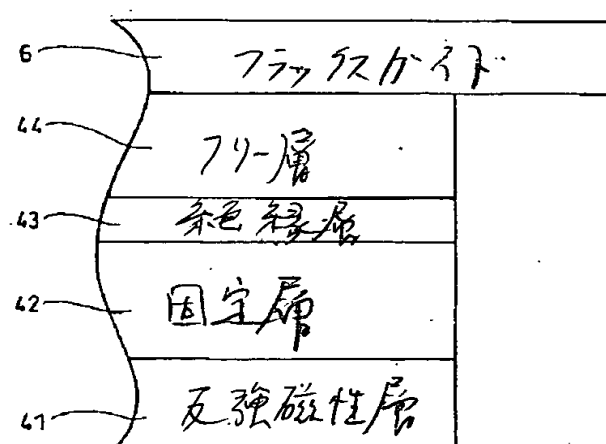 6 フラックスガイド
44 フリー層
43 絶縁層
42 固定層
41 反強磁性層